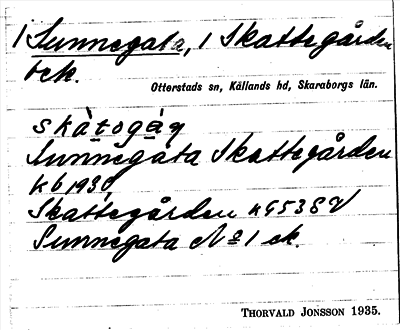 1 Sunnegata, 1 Skattegården
bek.
Otterstads sn, Kållands hd, Skaraborgs län.
skàtogàṇ
Sunnegata Skattegården
kb 1930,
Skattegården kG538V
Sunnegata No 1 ek.
THORVALD JONSSON 1935.